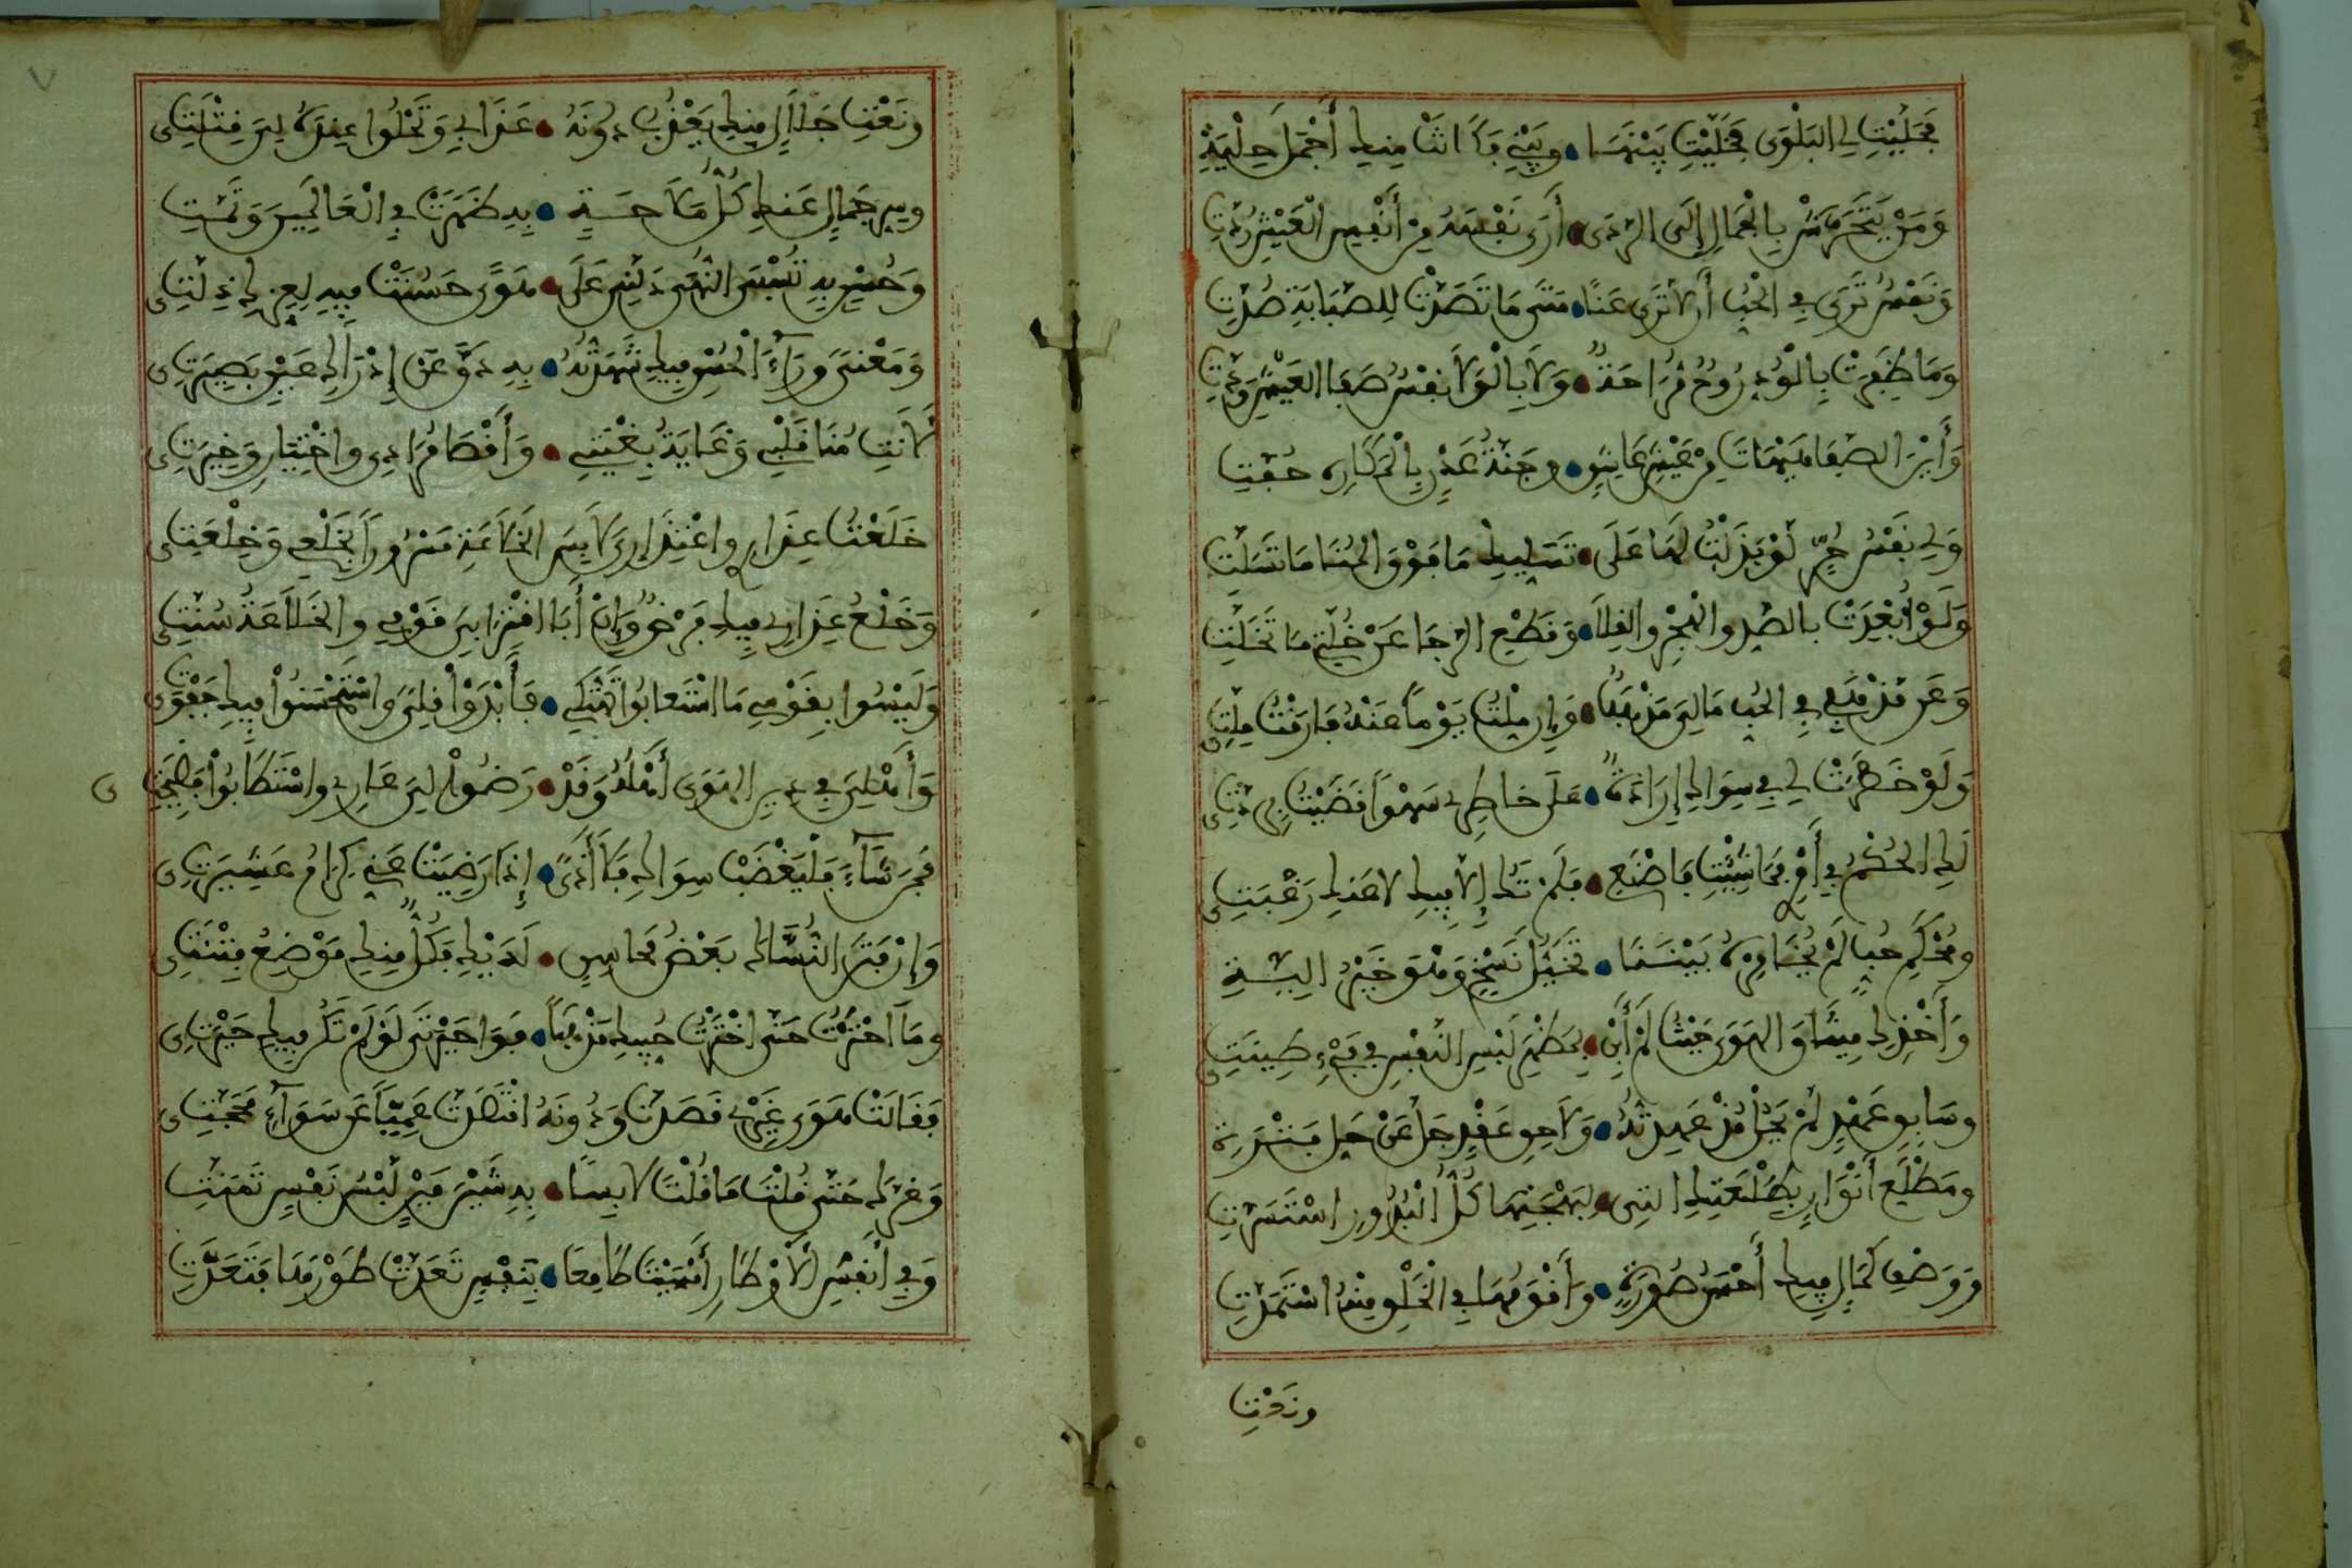 فحليت لي البلوى فخليت بينها • وبيني فكانت منك أجمل حلية
ومن يتحرش بالجمال إلى الردى • أرى نفسه من أنفس العيش ردت
ونفس ترى في الحب أن لا ترى عنا • متى ما تصدت للصبابة صدت
وما ظفرت بالود روح مراحة • ولا بالولا نفس صفا العيش ودت
وأين الصفا هيهات من عيش عاشق • وجنة عدن بالمكاره حفت
ولي نفس حر لو بذلت لها على • تسليك ما فوق المنا ما تسلت
ولو أبعدت بالصد والهجر والقلا • وقطع الرجا عن خلتي ما تخلت
وعن مذهبي في الحب مالي مذهب • وإن ملت يوما عنه فارقت ملتي
ولو خطرت لي في سواك إرادة • على خاطري سهوا قضيت بردتي
لك الحكم في أمري فما شئت فاصنع • فلم تك إلا فيك لا عنك رغبتي
ومحكم حب لم يخامره بيننا • تخيل نسخ وهو خير ألية
وأخذك ميثاق الهوى حيث لم أبن • بمظهر لبس النفس في فيء طينتي
وسابق عهد لم يحل مذ عهدته • ولاحق عقد جل عن حل فترة
ومطلع أنوار بطلعتك التي • لبهجتها كل البدور استسرت
ووصف كمال فيك أحسن صورة • وأقومها في الخلق منه استمدت
ونعت
ونعت جلال منك يعذب دونه • عذابي وتحلوا عنده لي قتلتي
وسر جمال عنك كل ملاحة • به ظهرت في العالمين وتمت
وحسن به تسبى النهى دلني على • هوى حسنت فيه لعزك ذلتي
ومعنى وراء الحسن فيك شهدته • به دق عن إدراك عين بصيرتي
لأنت منا قلبي وغاية بغيتي • وأقصا مرادي واختياري وخيرتي
خلعت عذاري واعتذاري لابس الخلاعة مسرورا بخلعي وخلعتي
وخلع عذاري فيك فرضي وإن أبا اقترابي قومي والخلاعة سنتي
وليسوا بقومي ما استعابوا تهتكي • فأبدوا قلى واستحسنوا فيك جفوتي
وأهلي في دين الهوى أهله وقد • رضوا لي عاري واستطابوا فضيحتي
فمن شاء فليغضب سواك فلا أذى • إذا رضيت عني كرام عشيرتي
وإن فتن النساك بعض محاسن • لديك فكل منك موضع فتنتي
وما احترت حتى اخترت حبيك مذهبا • فوا حيرتي لو لم تكن فيك حيرتي
فقالت هوى غيري قصدت ودونه اقتصدت عميا عن سواء محجتي
وغرك حتى قلت ما قلت لابسا • به شين مين لبس نفس تمنت
وفي أنفس الأوطار أمسيت طامعا • بنفس تعدت طورها فتعدت